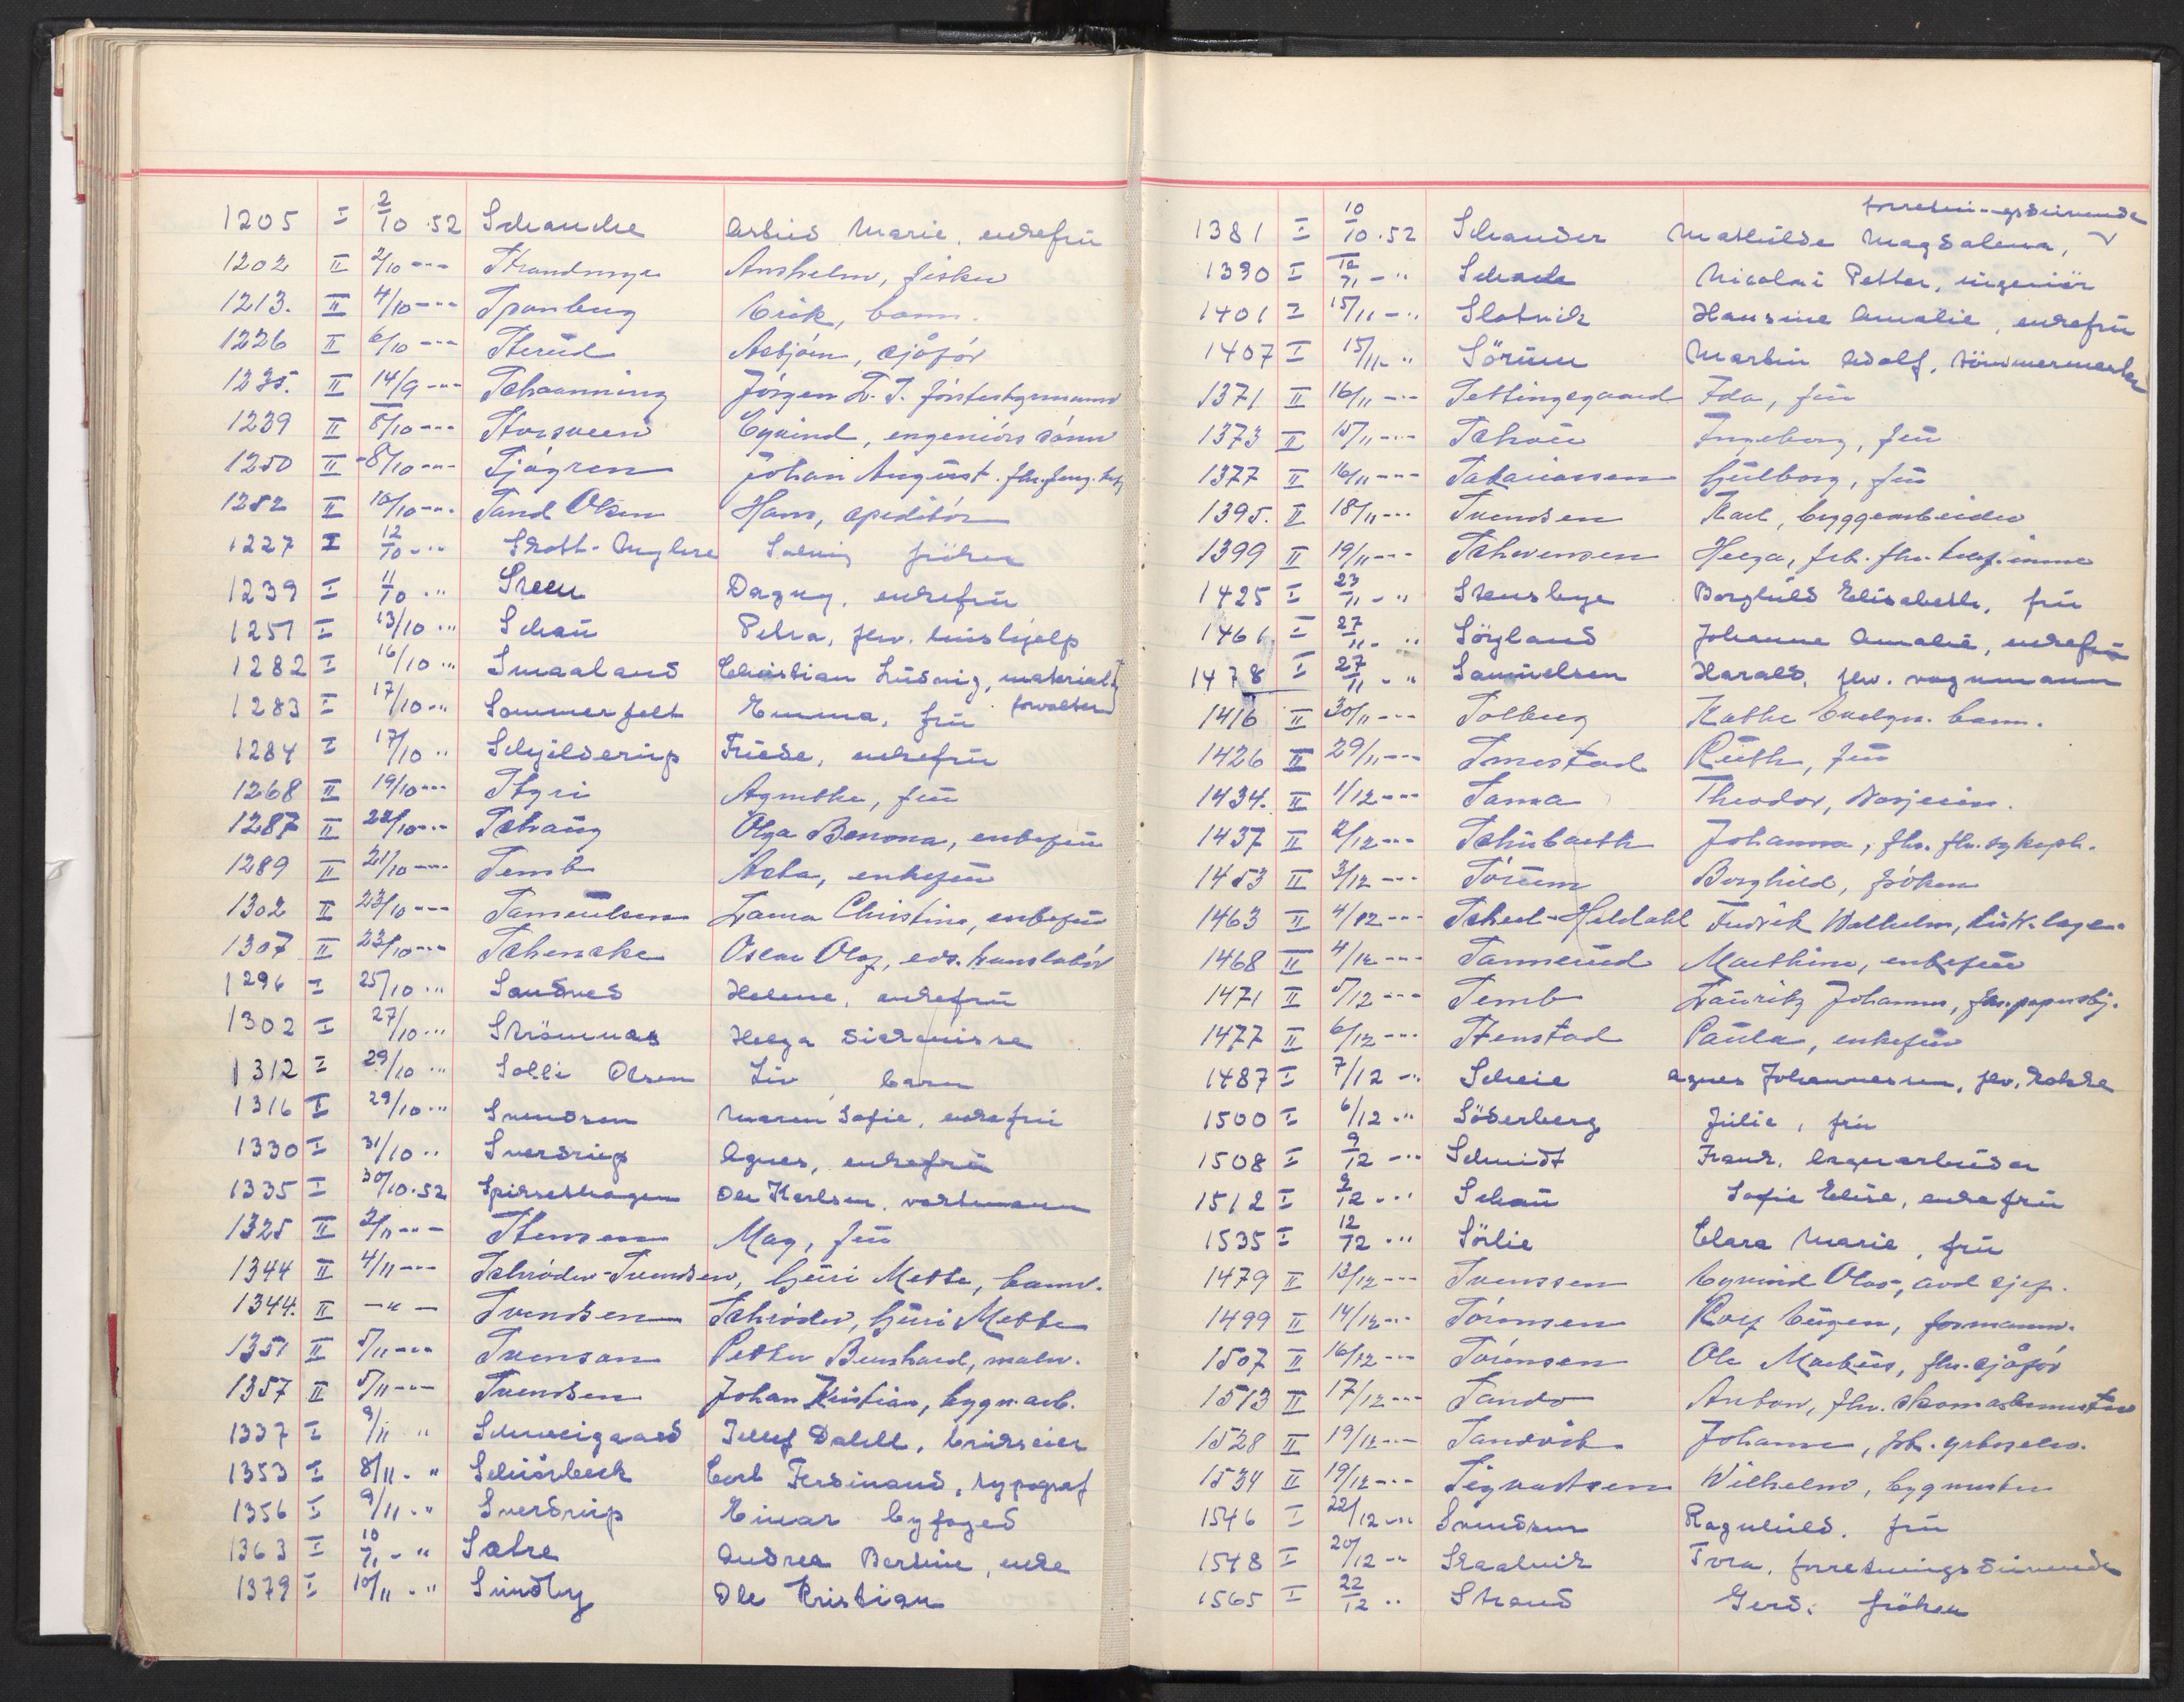 1205 I 2/10.52 Schancke Astrid Marie, enkefrü
1202 II 2/10 --- Strandmyr Anshelm, fisker
1213. II 4/10 --- Spanberg Erik, barn.
1226 II 6/10 --- Sterüd Asbjørn, sjåfør
1235. II 14/9 --- Schaanning Jørgen
1239 II 8/10 --- Storsveen Eyvind, engeniørs sønn
1250 II 8/10 --- Sjøgren Johan Augüst.
1252 II 10/10 --- Sand Olsen Hans, speditør
1227 I 12/10 -- Skott- Solveig fröken
1239 I 11/10 -- Steen Dagny, enkefrü
1251 I 13/10 -- Schaü Petra, fhv. hüshjelp
1282 I 16/10 -- Smaaland Christian Lüdvig, material
forvalter
1283 I 17/10 -- Sommerfelt Emma, frü
1284 I 17/10 -- Schjelderüp Früde, enkefrü
1268 II 19/10 --- Styri Agnethe, frü
1287 II 22/10 --- Schaüg Olga Benona, enkefrü
1289 II 21/10 --- Semb Asta, enkefrü
1302 II 23/10 --- Samüelsen Laura Christine, enkefrü
1307 II 23/10 --- Schencke Oscar Olaf, eds. translatør
1296 I 25/10 -- Sandved Helene, enkefrü
1302 I 27/10 -- Strömnes Helga diakonisse
1312 I 29/10 -- Solli Olsen Liv, barn
1316 I 29/10 -- Svendsen Maren Sofie, enkefrü
1330 I 31/10 -- Sverdrüp Agnes, enkefrü
1335 I 30/10.52 Spirsethagen Ole Karlsen, vaktmann
1325 II 2/11 --- Stensen May, frü
1344 II 4/11 --- Schrøder-Svendsen, Güri Mette, barn.
1344. II -"- Svendsen Schrøder, Güri Mette
1351 II 5/11 --- Svenson Petter Bernhard, maler.
1357 II 5/11 --- Svendsen Johan Kristian, bygn.arb.
1337 I 9/11 " Schweigaard Tellef Dahll, brükseier
1353 I 8/11 - " Schiørbeck Carl Ferdinand, typograf
1356 I 9/11 - " Sverdrüp Einar byfoged
1363 I 10/11 - " Satre Andrea Bertine, enke
1379 I 10/11 - " Sündby Ole Kristian
forretningsdrivende
1381 I 10/10.52 Schander Mathilde Magdalena,
1390 I 12/11 - " Schade Nicolai Petter, ingeniör
1401 I 15/11 - " Slotvik Hansine Amalie, enkefrü
1407 I 15/11 - " Sörüm Martin Adolf, tömmermester
1371 II 16/11 --- Settingsgaard Ida, frü
1373 II 15/11 --- Schoü Ingeborg, frü
1377 II 16/11 --- Sakariassen Gülborg, frü
1395. II 18/11 --- Svendsen Karl, byggearbeider
1399 II 19/11 --- Schwensen Helga, frk. fhv.
1425 I 23/11 - " Stensbye Borghild Elisabeth, frü
1461 I 27/11 - " Söyland Johanne Amalie, enkefrü
1478 I 27/11 - " Samüelsen Harald, fhv. vognmann
1416 II 30/11 --- Solberg Kathe Evelyn. barn.
1426 II 29/11 --- Smestad Rüth, frü
1434. II 1/12 --- Sama Theodor,
1437 II 2/12 --- Schübarth Johanna, fhv. sykepl.
1453 II 3/12 --- Sørüm Borghild, frøken
1463 II 4/12 --- Scheel-Heldahl Fredrik Wilhelm,
1468 II 4/12 --- Sannerüd Marthine, enkefrü
1471 II 5/12 --- Semb Laüritz Johannes,
1477 II 6/12 --- Stenstad Paüla, enkefrü
1487 I 7/12 -- Scheie Agnes Johannessen, fhv. kokke
1500 I 6/12 -- Söderberg Jülie, frü
1508 I 9/12 -- Schmidt Frank, lagerarbeider
1512 I 9/12 -- Schaü Sofie Elise, enkefrü
1535 I 12/12 -- Sörlie Clara Marie, frü
1479 II 13/12 --- Svenssen Eyvind Olav, avd sjef.
1499 II 14/12 --- Sørensen Rolf Eügen, formann.
1507 II 16/12 --- Sørensen Ole Marküs, fhv. sjåfør
1513 II 17/12 --- Sando Anton, fhv. skomakermester
1528 II 19/12 --- Sandvik Johanne, frk.
1534 II 19/12 --- Sigvartsen Wilhelm, bygmester
1546 I 22/12 -- Svendsen Ragnhild. frü
1548 I 20/12 -- Skaalvik Tora, forretningsdrivende
1565 I 22/12 -- Strand Gerd. fröken